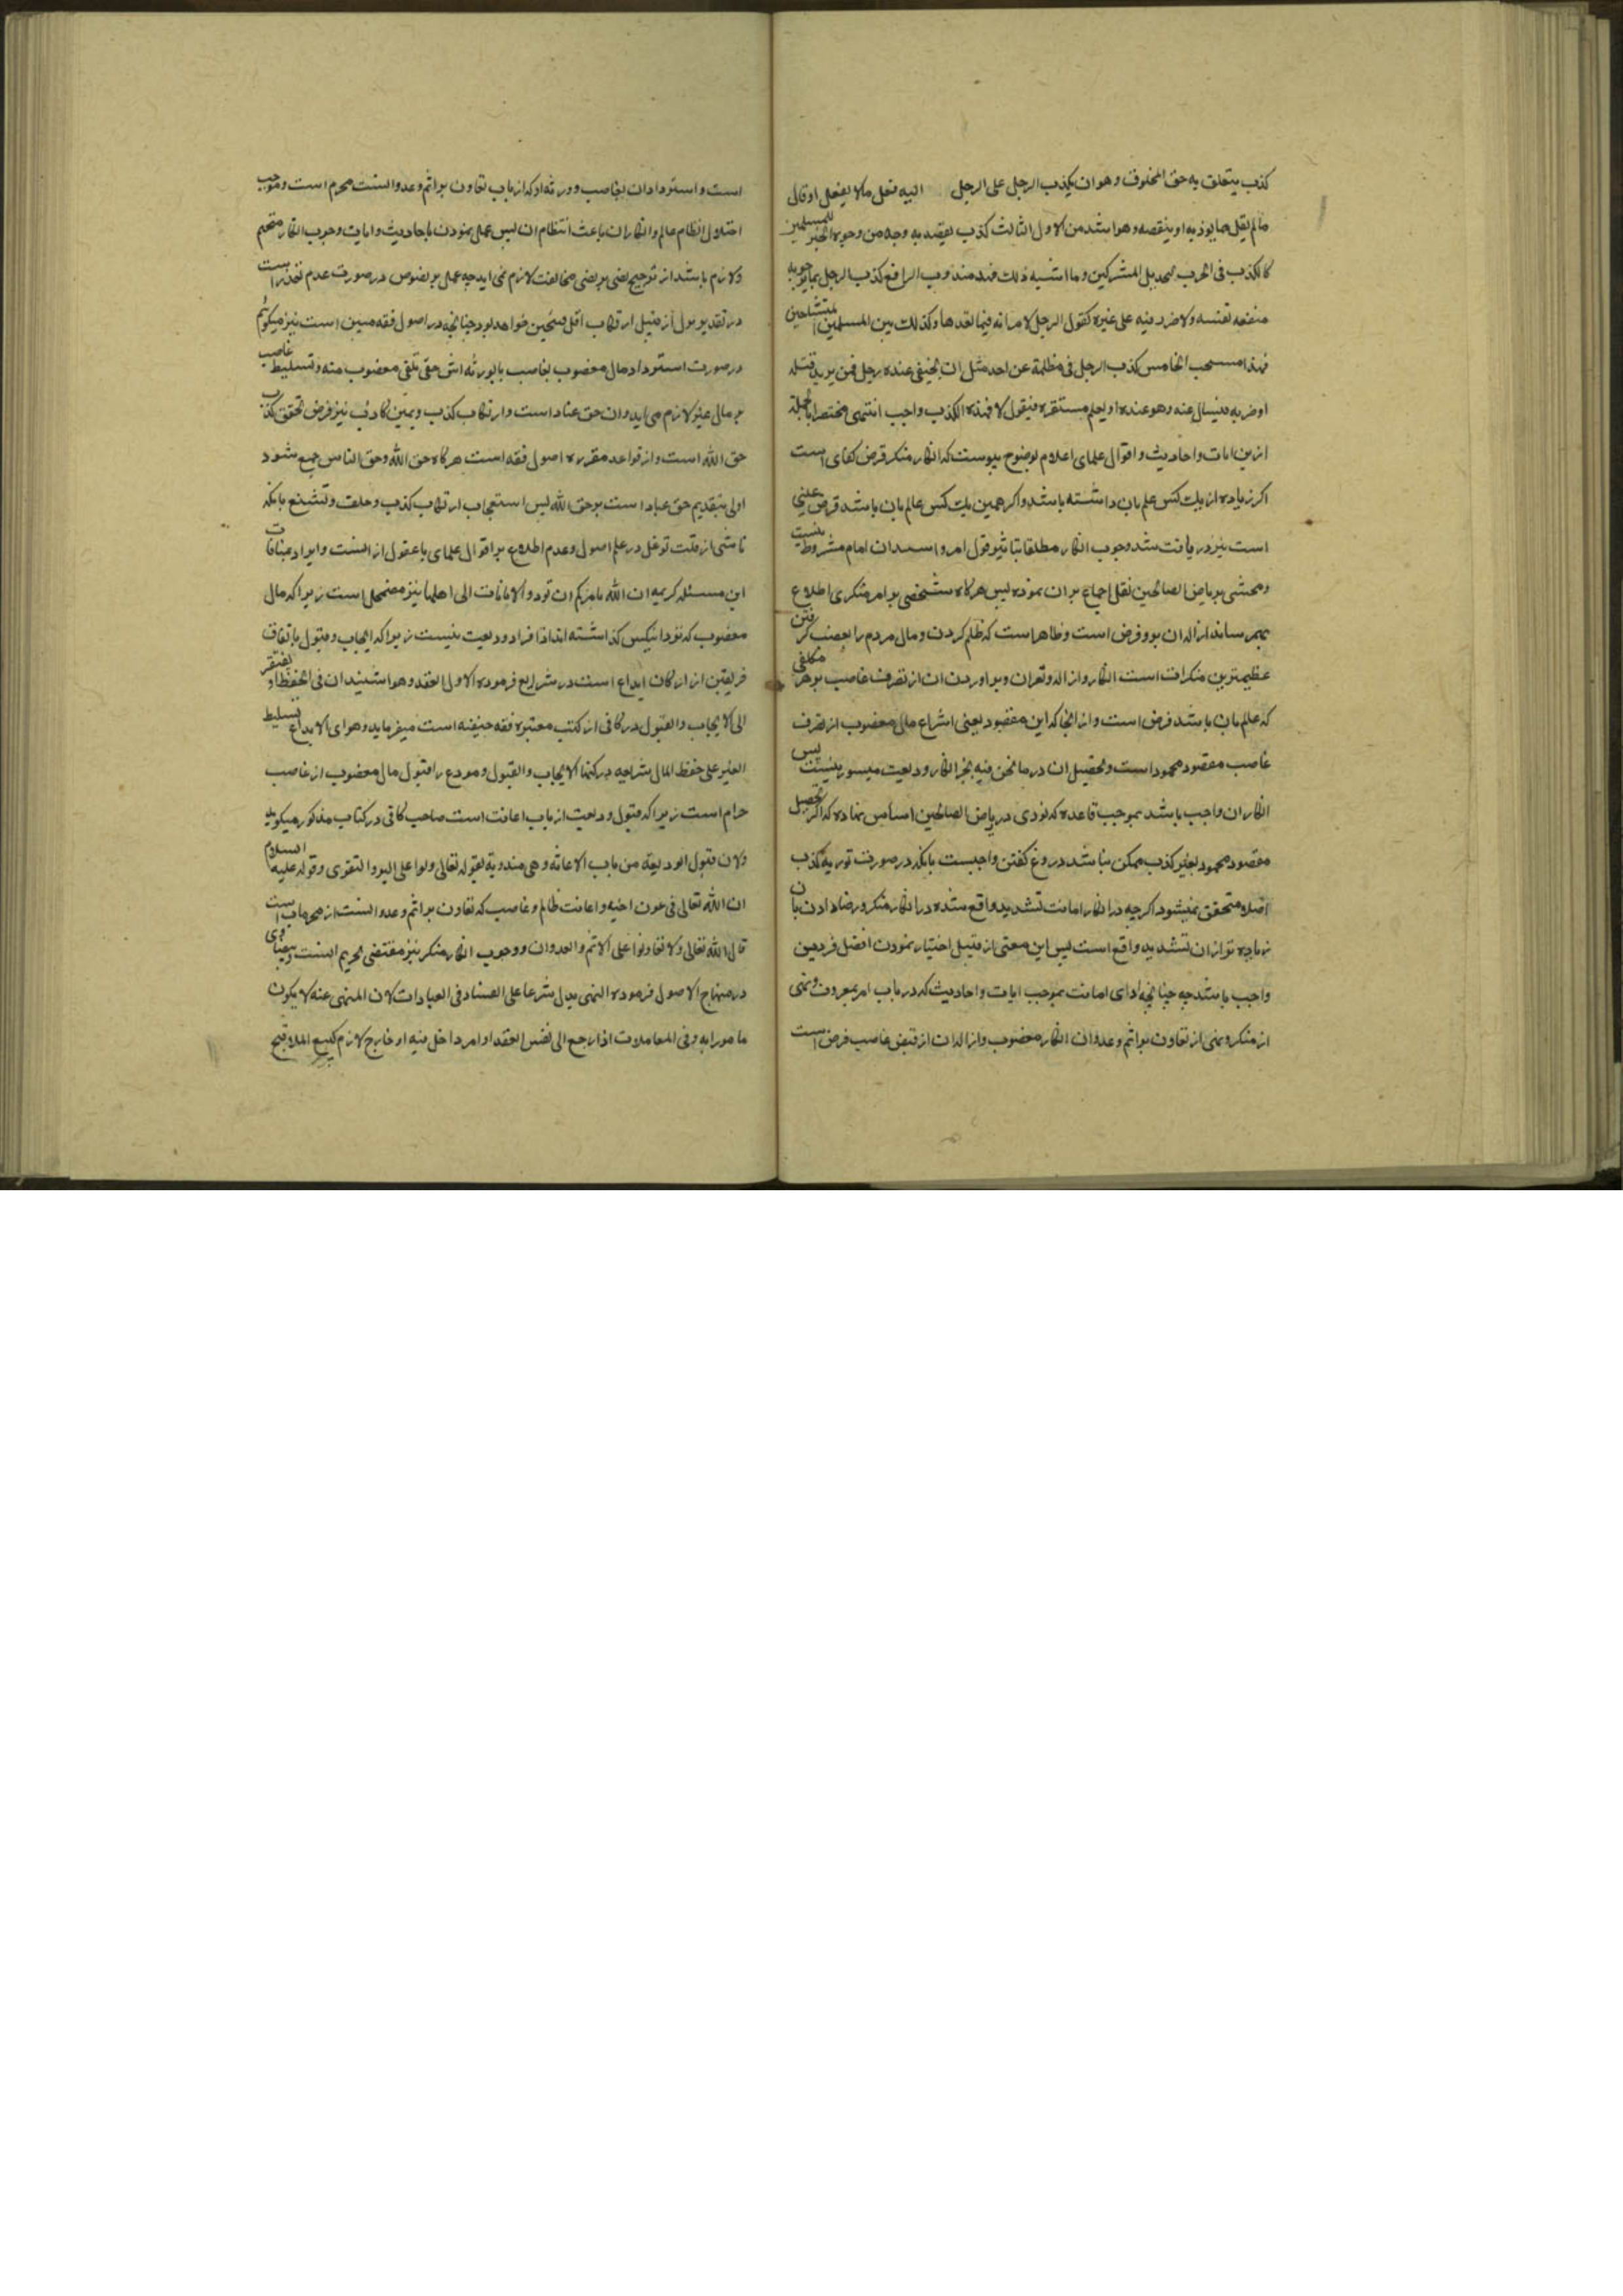 کذب یتعلق به حق المخلوق و هو ان یکذب الرجل علی الرجل الیه فعل مالا یفعل او قال
مالم یقل مما یوذیه او ینقصه و هو اشد من الاول الثالث کذب یقصد به وجه من وجوه الخیر للمسلمین
کالکذب فی الحرب المشرکین و ما اشبه ذلک فهذ مندوب الرابع کذب الرجل بما یرجو به
منفعه لنفسه ولا ضرر فیه علی غیره کقول الرجل لامراته فیما یعدها و کذلک بین المسلمین المتشاحنین
فهذا مستحب الخامس کذب الرجل فی مظلمة عن احد مثل ان یختفی عنده رجل فمن یرید قتله
او ضربه فیسال عنه و هو عنده او یعلم مستقره فیقول لا فهذه الکذب واجب انتهی مختصرا بالجملة
ازین ایات و احادیث و اقوال علمای اعلام بوضوح پیوست که انکار منکر فرض کفای است
اکر زیاده از یک کس علم بان داشته باشد و اکر همین یک کس عالم بان باشد فرض عینی
است نیز دریافت شد وجوب انکار مطلقا بتاثیر قول امر و اسیدان امام مشروط نیست
و محشی بریاض الصالحین نقل اجماع بر ان نموده پس هرکاه شخصی بر امر منکری اطلاع
بهم رساند ازاله ان برو فرض است و ظاهر است که ظلم کردن و مال مردم را بغصب کرفتن
عظیم ترین منکرات است انکار و ازاله و تعران و بر اوردن ان از تصرف غاصب بر هر مکلفی
که عالم بان باشد فرض است و از انجا که این مقصود یعنی انتزاع مال مغصوب از تصرف
غاصب مقصود محمود است و تحصیل ان در ما نحن فیه بجز انکار ودیعت میسور نیست پس
انکار ان واجب باشد بموجب قاعده که نووی در ریاض الصالحین اساس نهاده که اکر تحصیل
مقصود محمود بغیر کذب ممکن نباشد دروغ کفتن واجبست بانکه در صورت توریه کذب
اصلا متحقق نمیشود اکرچه در انکار امانت تشدید واقع شده در انکار منکر و رضا دادن بان
زیاده تر از ان تشدید واقع است پس این معنی از قبیل اختیار نمودن افضل فردین
واجب باشد چه چنانچه ادای امانت بموجب ایات و احادیث که در باب امر بمعروف و نهی
از منکر و نهی از تعاون بر اثم و عدوان انکار مغصوب و ازاله ان از قبض غاصب فرض است
است و استرداد ان بغاصب و ورثه او که از باب تعاون بر اثم و عدوانست محرم است و موجب
اختلال نظام عالم و انکار ان باعث انتظام ان پس عمل نمودن باحادیث و ایات وجوب انکار متحتم
و لازم باشد از ترجیح نصی بر نصی مخالفت لازم نمی اید چه عمل بر نصوص در صورت عدم تعذر است
در تقدیر نزول از قبیل ارتکاب اقل قبیحین خواهد بود چنانچه در اصول فقه مبین است نیز میکوئیم
در صورت استرداد مال مغصوب بغاصب یا بورثه اش حق تلفی مغصوب منه و تسلیط غاصب
بر مال غیر لازم می اید و ان حق عباد است و ارتکاب کذب و یمین کاذب نیز فرض تحقق کذب
حق الله است و از قواعد مقرره اصول فقه است هرکاه حق الله و حق الناس جمع شود
اولی بتقدیم حق عباد است بر حق لله پس استعجاب ارتکاب کذب و حلف و تشنع بانکه
ناشی از قلت توغل در علم اصول و عدم اطلاع بر اقوال علمای با عقول از انست و ایراد بمنافات
این مسئله کریمه ان الله یامرکم ان تودوا الامانات الی اهلها نیز مضمحل است زیرا که مال
مغصوب که نزد اینکس کذاشته اند افراد ودیعت نیست زیرا که ایجاب و قبول باتفاق
فریقین از ارکان ایداع است در شرایع فرموده الاول العقد و هو استنیدان فی الحفظ و یفتقر
الی الایجاب و القبول در کافی از کتب معتبره فقه حنیفه است میفرماید و هو ای الایداع تسلیط
الغیر علی حفظ المال شرایعه و رکنها الایجاب و القبول و مودع را قبول مال مغصوب از غاصب
حرام است زیرا که قبول ودیعت از باب اعانت است صاحب کافی در کتاب مذکور میکوید
ولان قبول الودیعة من باب الاعانه و هی مندوبة لقوله تعالی و تعاونوا علی البر و التقوی و قوله علیه السلام
ان الله تعالی فی عون اخیه و اعانت ظالم و غاصب که تعاون بر اثم و عدوانست از محرمات است
قال الله تعالی ولا تعاونوا علی الاثم و العدوان و وجوب انکار منکر نیز مقتضی تحریم انست بیضاوی
در منهاج الاصول فرموده النهی یدل شرعا علی الفساد فی العبادات لان المنهی عنه لا یکون
مامورا به و فی المعاملات اذا رجع الی نفس العقد او امر داخل فیه او خارج لازم کبیع الملاقیح